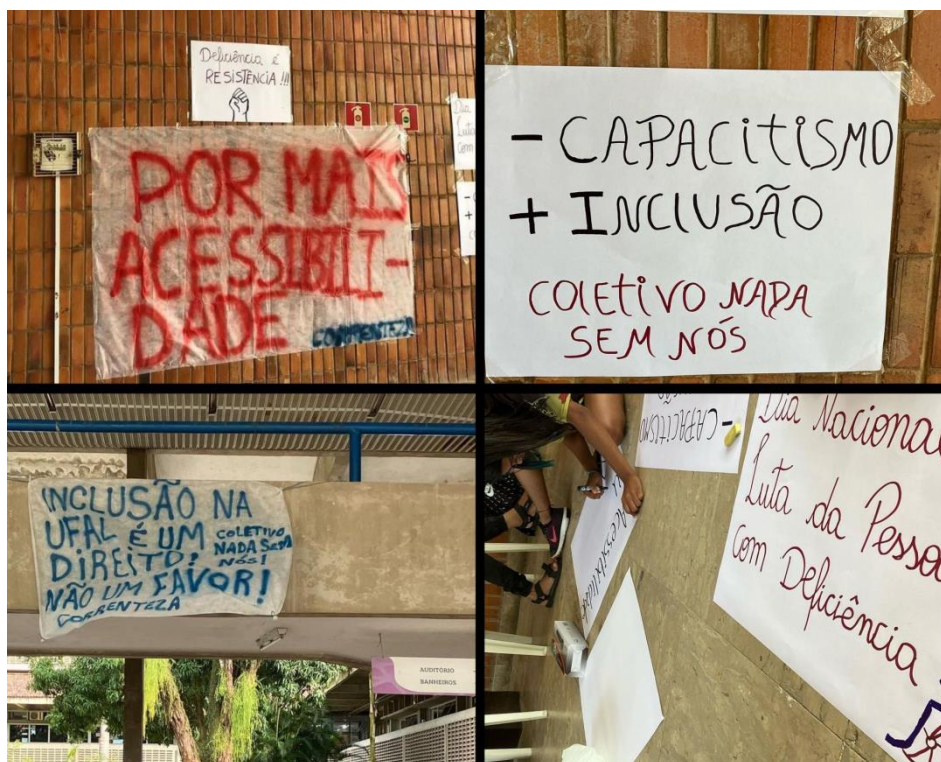 Deficiência é
RESISTÊNCIA!!!
POR MAIS
ACESSIBILI-
DADE
CORRENTEZA
Dia
Luta
Com
- CAPACITISMO
+ INCLUSÃO
COLETIVO NADA
SEM NÓS
INCLUSÃO NA
UFAL É UM
DIREITO!
NÃO UM FAVOR!
COLETIVO
NADA SEM
NÓS!
CORRENTEZA
AUDITÓRIO
BANHEIROS
- CAPACITISMO
Acessibilidade
Dia Nacional
Luta da Pessoa
com Deficiência